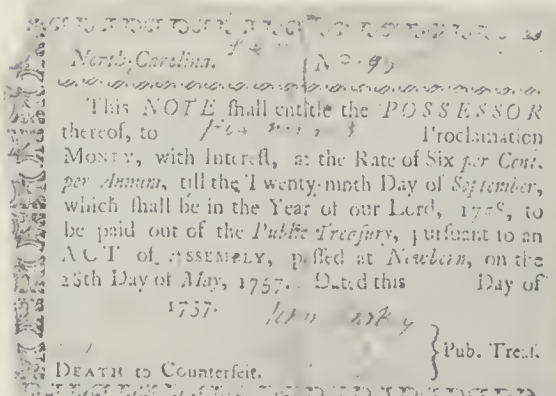 North-Carolina. No. 95
This NOTE ſhall entitle the POSSESSOR
thereof, to Proclamation
MONEY, with Intereſt, at the Rate of Six per Cent.
per Annum, till the Twenty-ninth Day of September,
which ſhall be in the Year of our Lord, 1758, to
be paid out of the Public Treaſury, purſuant to an
ACT of ASSEMBLY, paſſed at Newbern, on the
28th Day of May, 1757. Dated this Day of
1757.
Pub. Treaſ.
DEATH to Counterfeit.